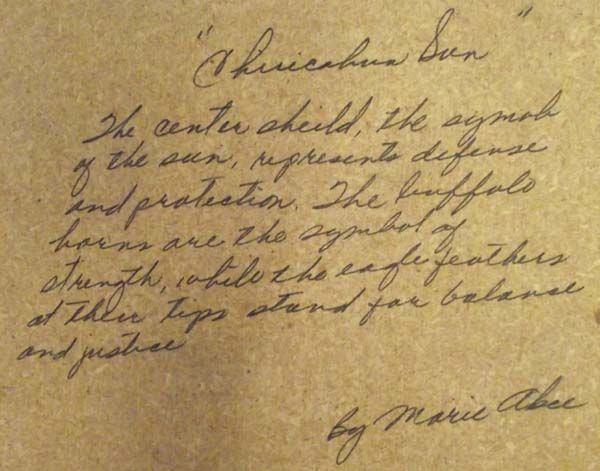 "Chiricahua Sun"
The center sheild, the symob
of the sun, represents defense
and protection. The buffalo
horns are the symbol of
strength, while the eagle feathers
at their tips stand for balance
and justice
by Marie Abee